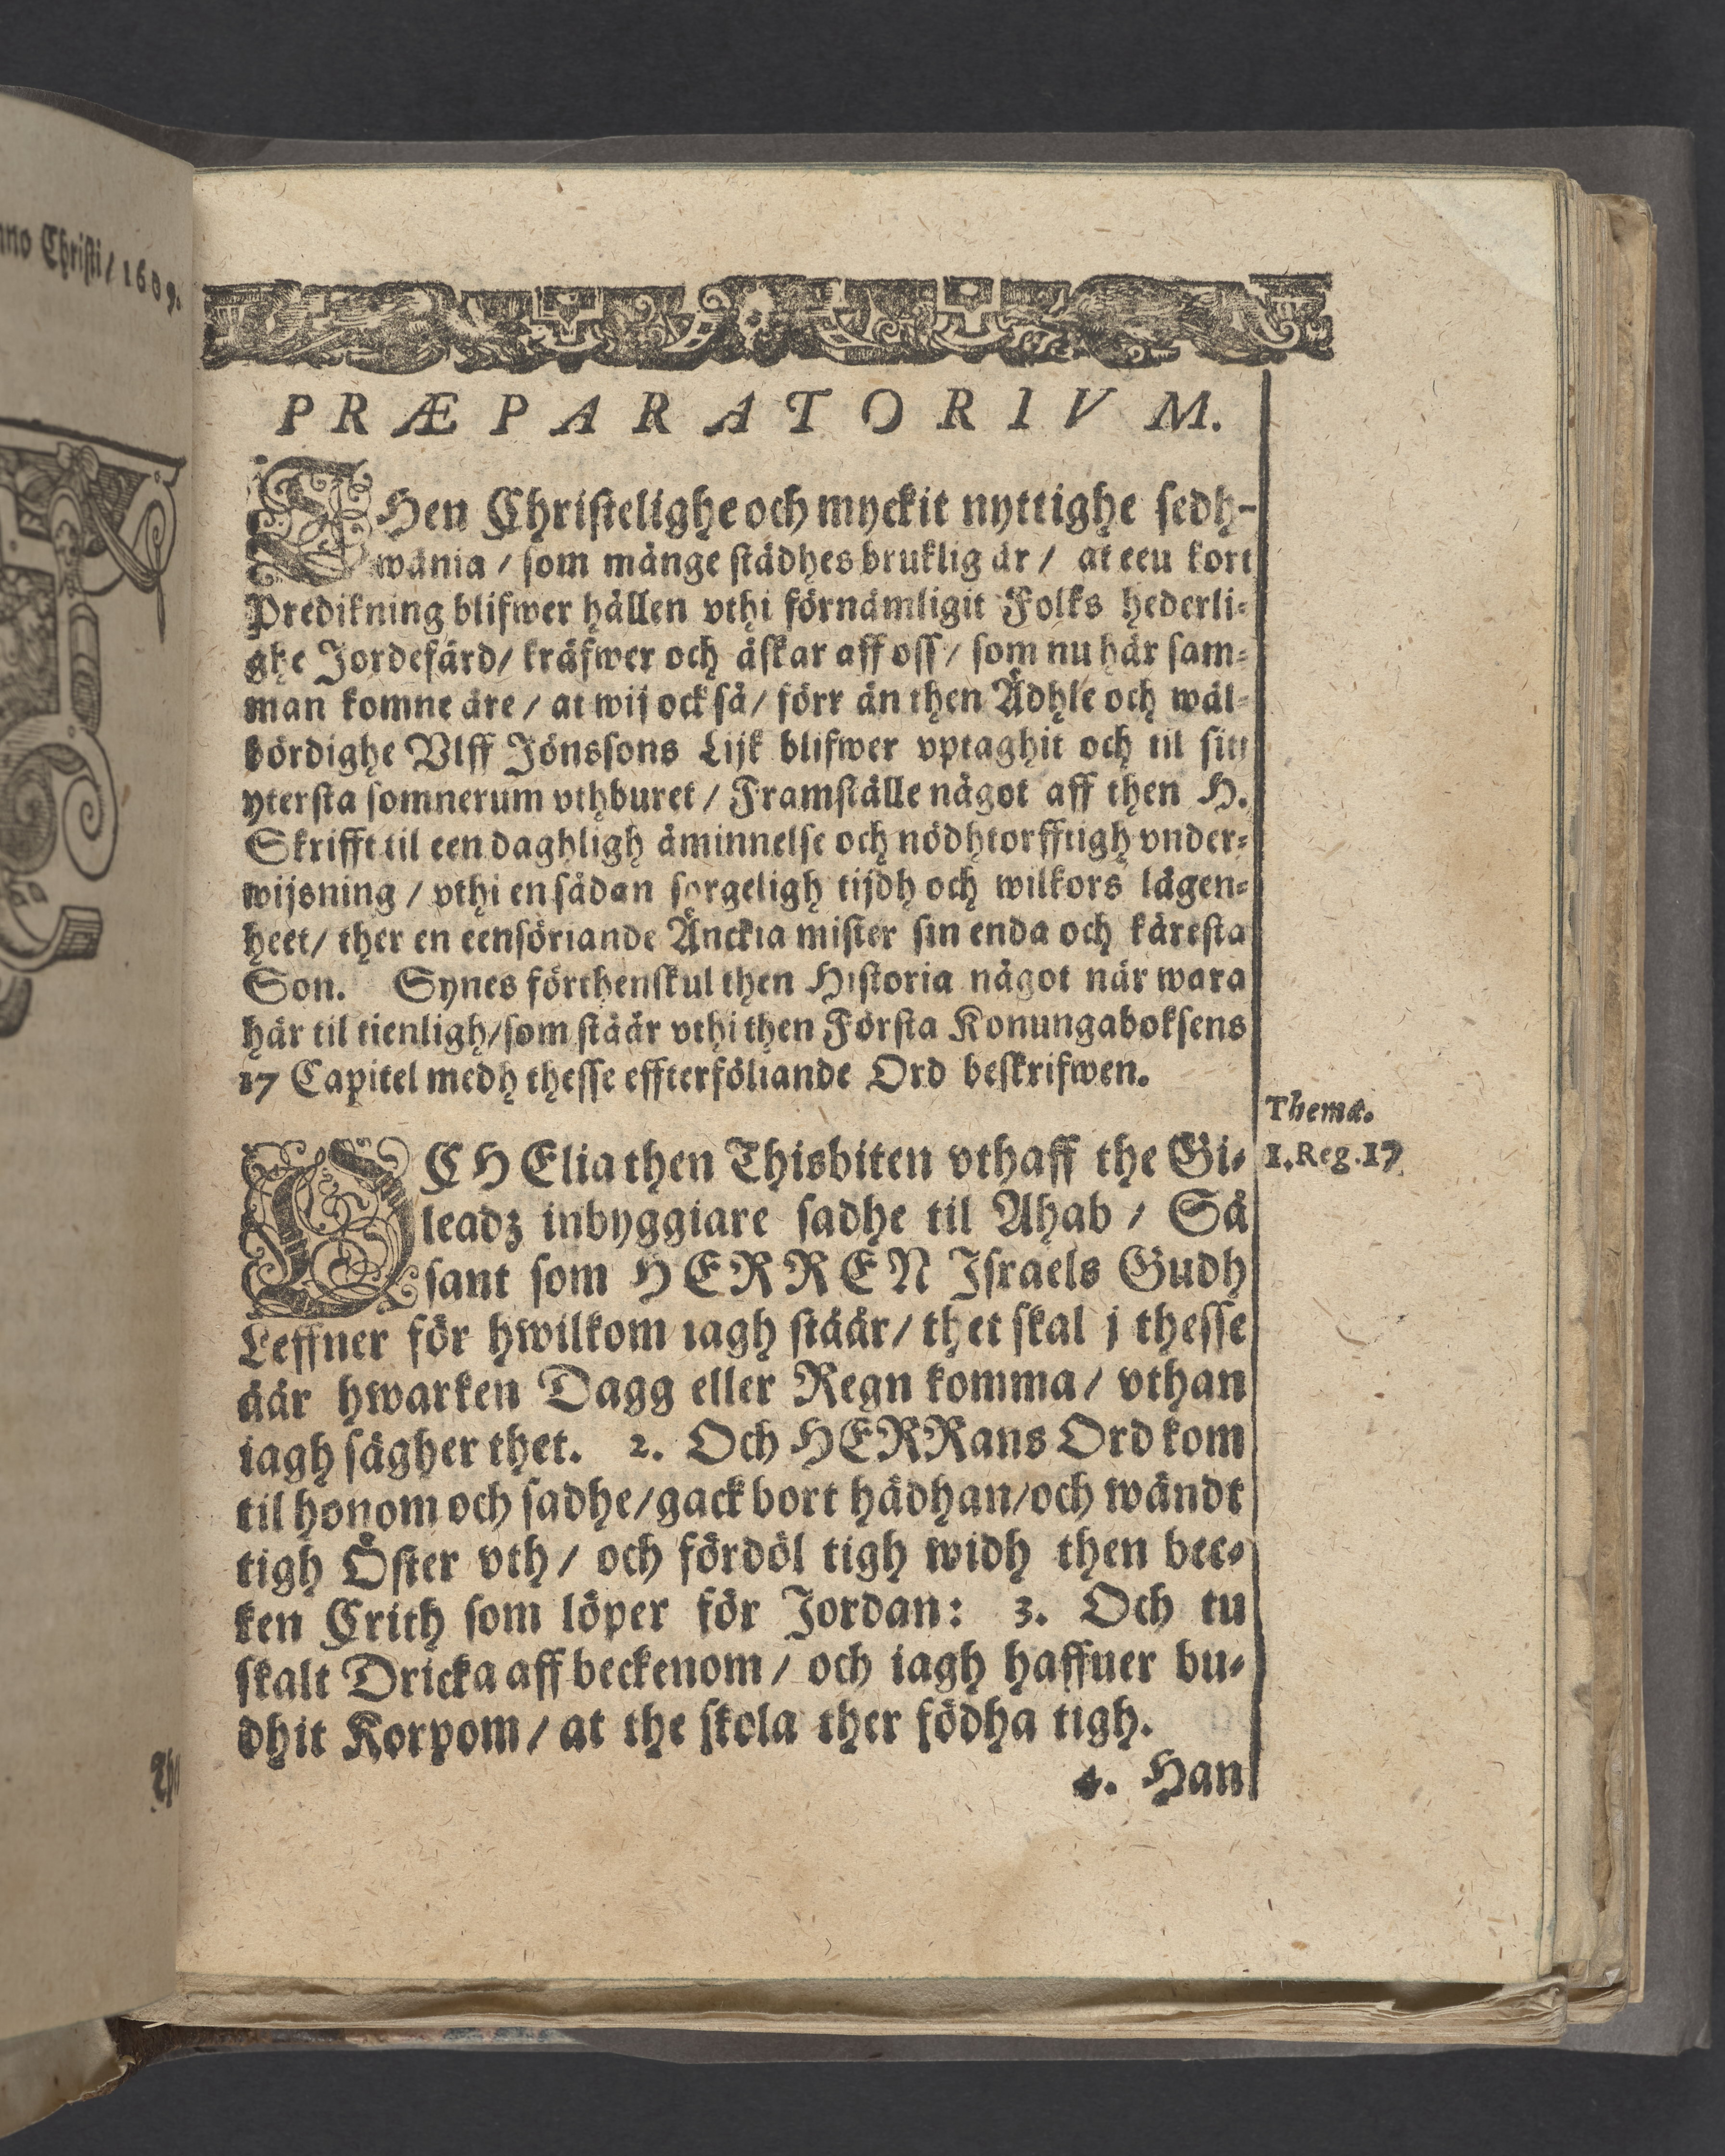 nno Christi / 1609.
PRÆPARATORIVM.
THen Christelighe och myckit nyttighe sedh-
wänia / som mänge städhes bruklig är / at eeu kort
Predikning blifwer hållen vthi förnämligit Folks hederli-
ghe Jordefärd / kräfwer och äskar aff oss / som nu här sam-
man komne äre / at wij ock så / förr än then Ädhle och wäl-
bördighe Vlff Jönssons Lijk blifwer vptaghit och til sitt
ytersta somnerum vthburet / Framställe något aff then H.
Skrifft til een daghligh åminnelse och nödhtorfftigh vnder-
wijsning / vthi en sådan sorgeligh tijdh och wilkors lägen-
heet / ther en eensöriande Änckia mister sin enda och käresta
Son. Synes förthenskul then Historia något när wara
här til tienligh / som ståår vthi then Första Konungaboksens
17 Capitel medh thesse effterföliande Ord beskrifwen.
Thema.
OCH Elia then Thisbiten vthaff the Gi-
1. Reg. 17
leadz inbyggiare sadhe til Ahab / Så
sant som HERREN Israels Gudh
Leffner för hwilkom iagh ståår / thet skal j thesse
åår hwarken Dagg eller Regn komma / vthan
iagh sägher thet. 2. Och HERRans Ord kom
til honom och sadhe / gack bort hädhan / och wändt
tigh Öster vth / och fördöl tigh widh then bec-
ken Crith som löper för Jordan: 3. Och tu
skalt Dricka aff beckenom / och iagh haffuer bu-
dhit Korpom / at the skola ther födha tigh.
4. Han